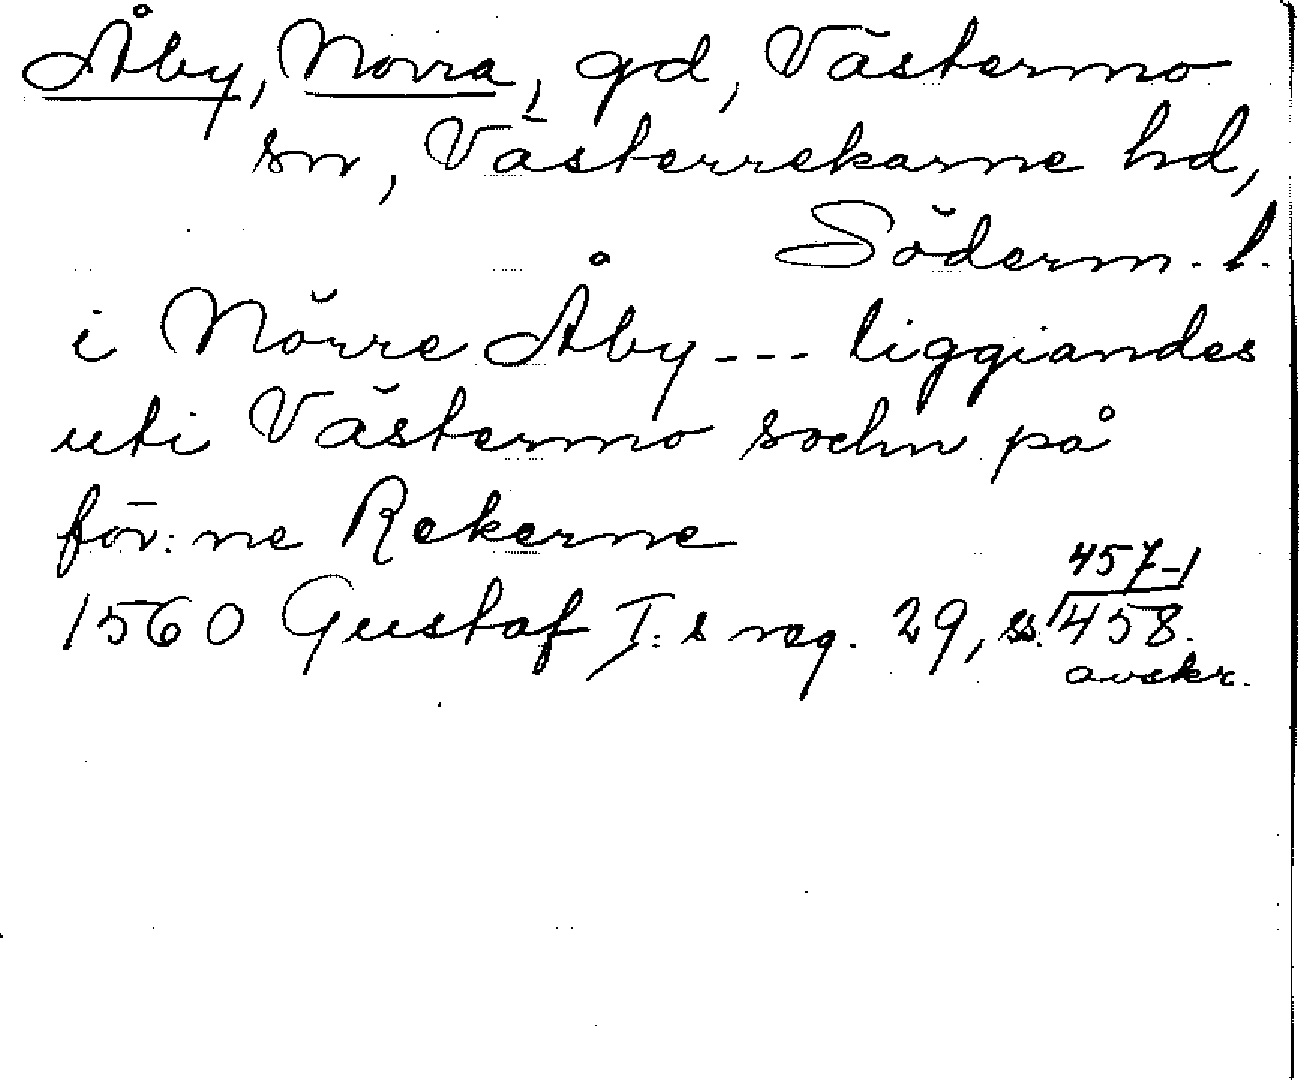 Åby, Norra, gd, Västermo
sn, Västerrekarne hd,
Söderm. l.
i Nörre Åby --- liggiandes
uti Västermo sochn på
för:ne Rekerne
457-
1560 Gustaf I:s reg. 29, ss. 458.
avskr.